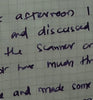 afternoon I
and discussed
the scanner or
for time much the
and made some